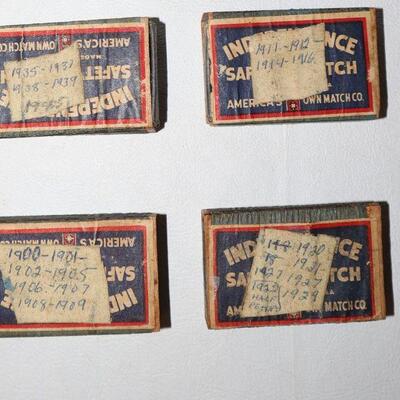 AMERICA'S OWN MATCH CO.
MADE
SAFET
INDEPE
1935-1937
1938-1939
INDE NCE
SAF TCH
AMERICA'S OWN MATCH CO.
1911-1912-
1914-1916
AMERICA'S
OWN MATCH CO
SAFE
INDE
1900-1901-
1902-1905
1906-1907
1908-1909
INDE NCE
SA TCH
AM MATCH CO.
1920
1921
1927 1927
1923 1929
HALF
PENNY